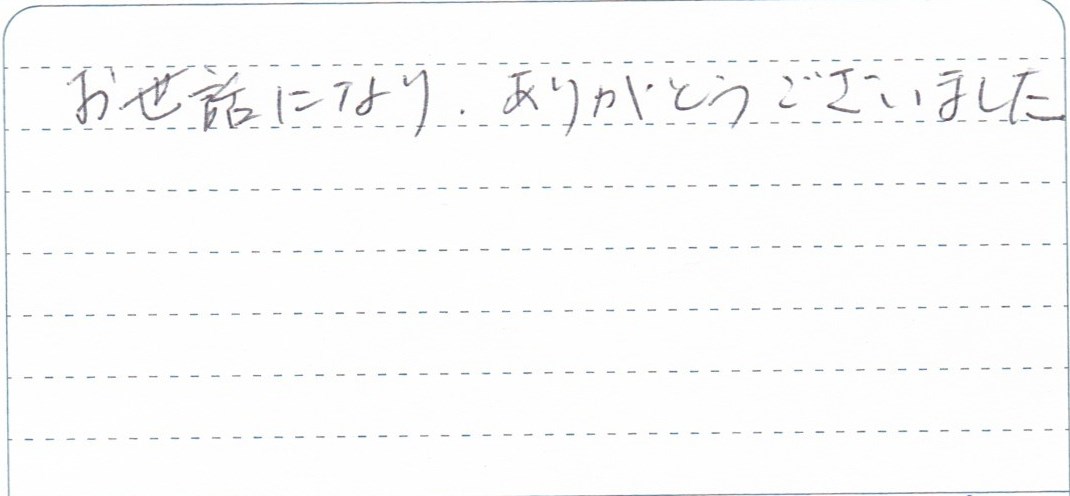 お世話になり、ありがとうございました